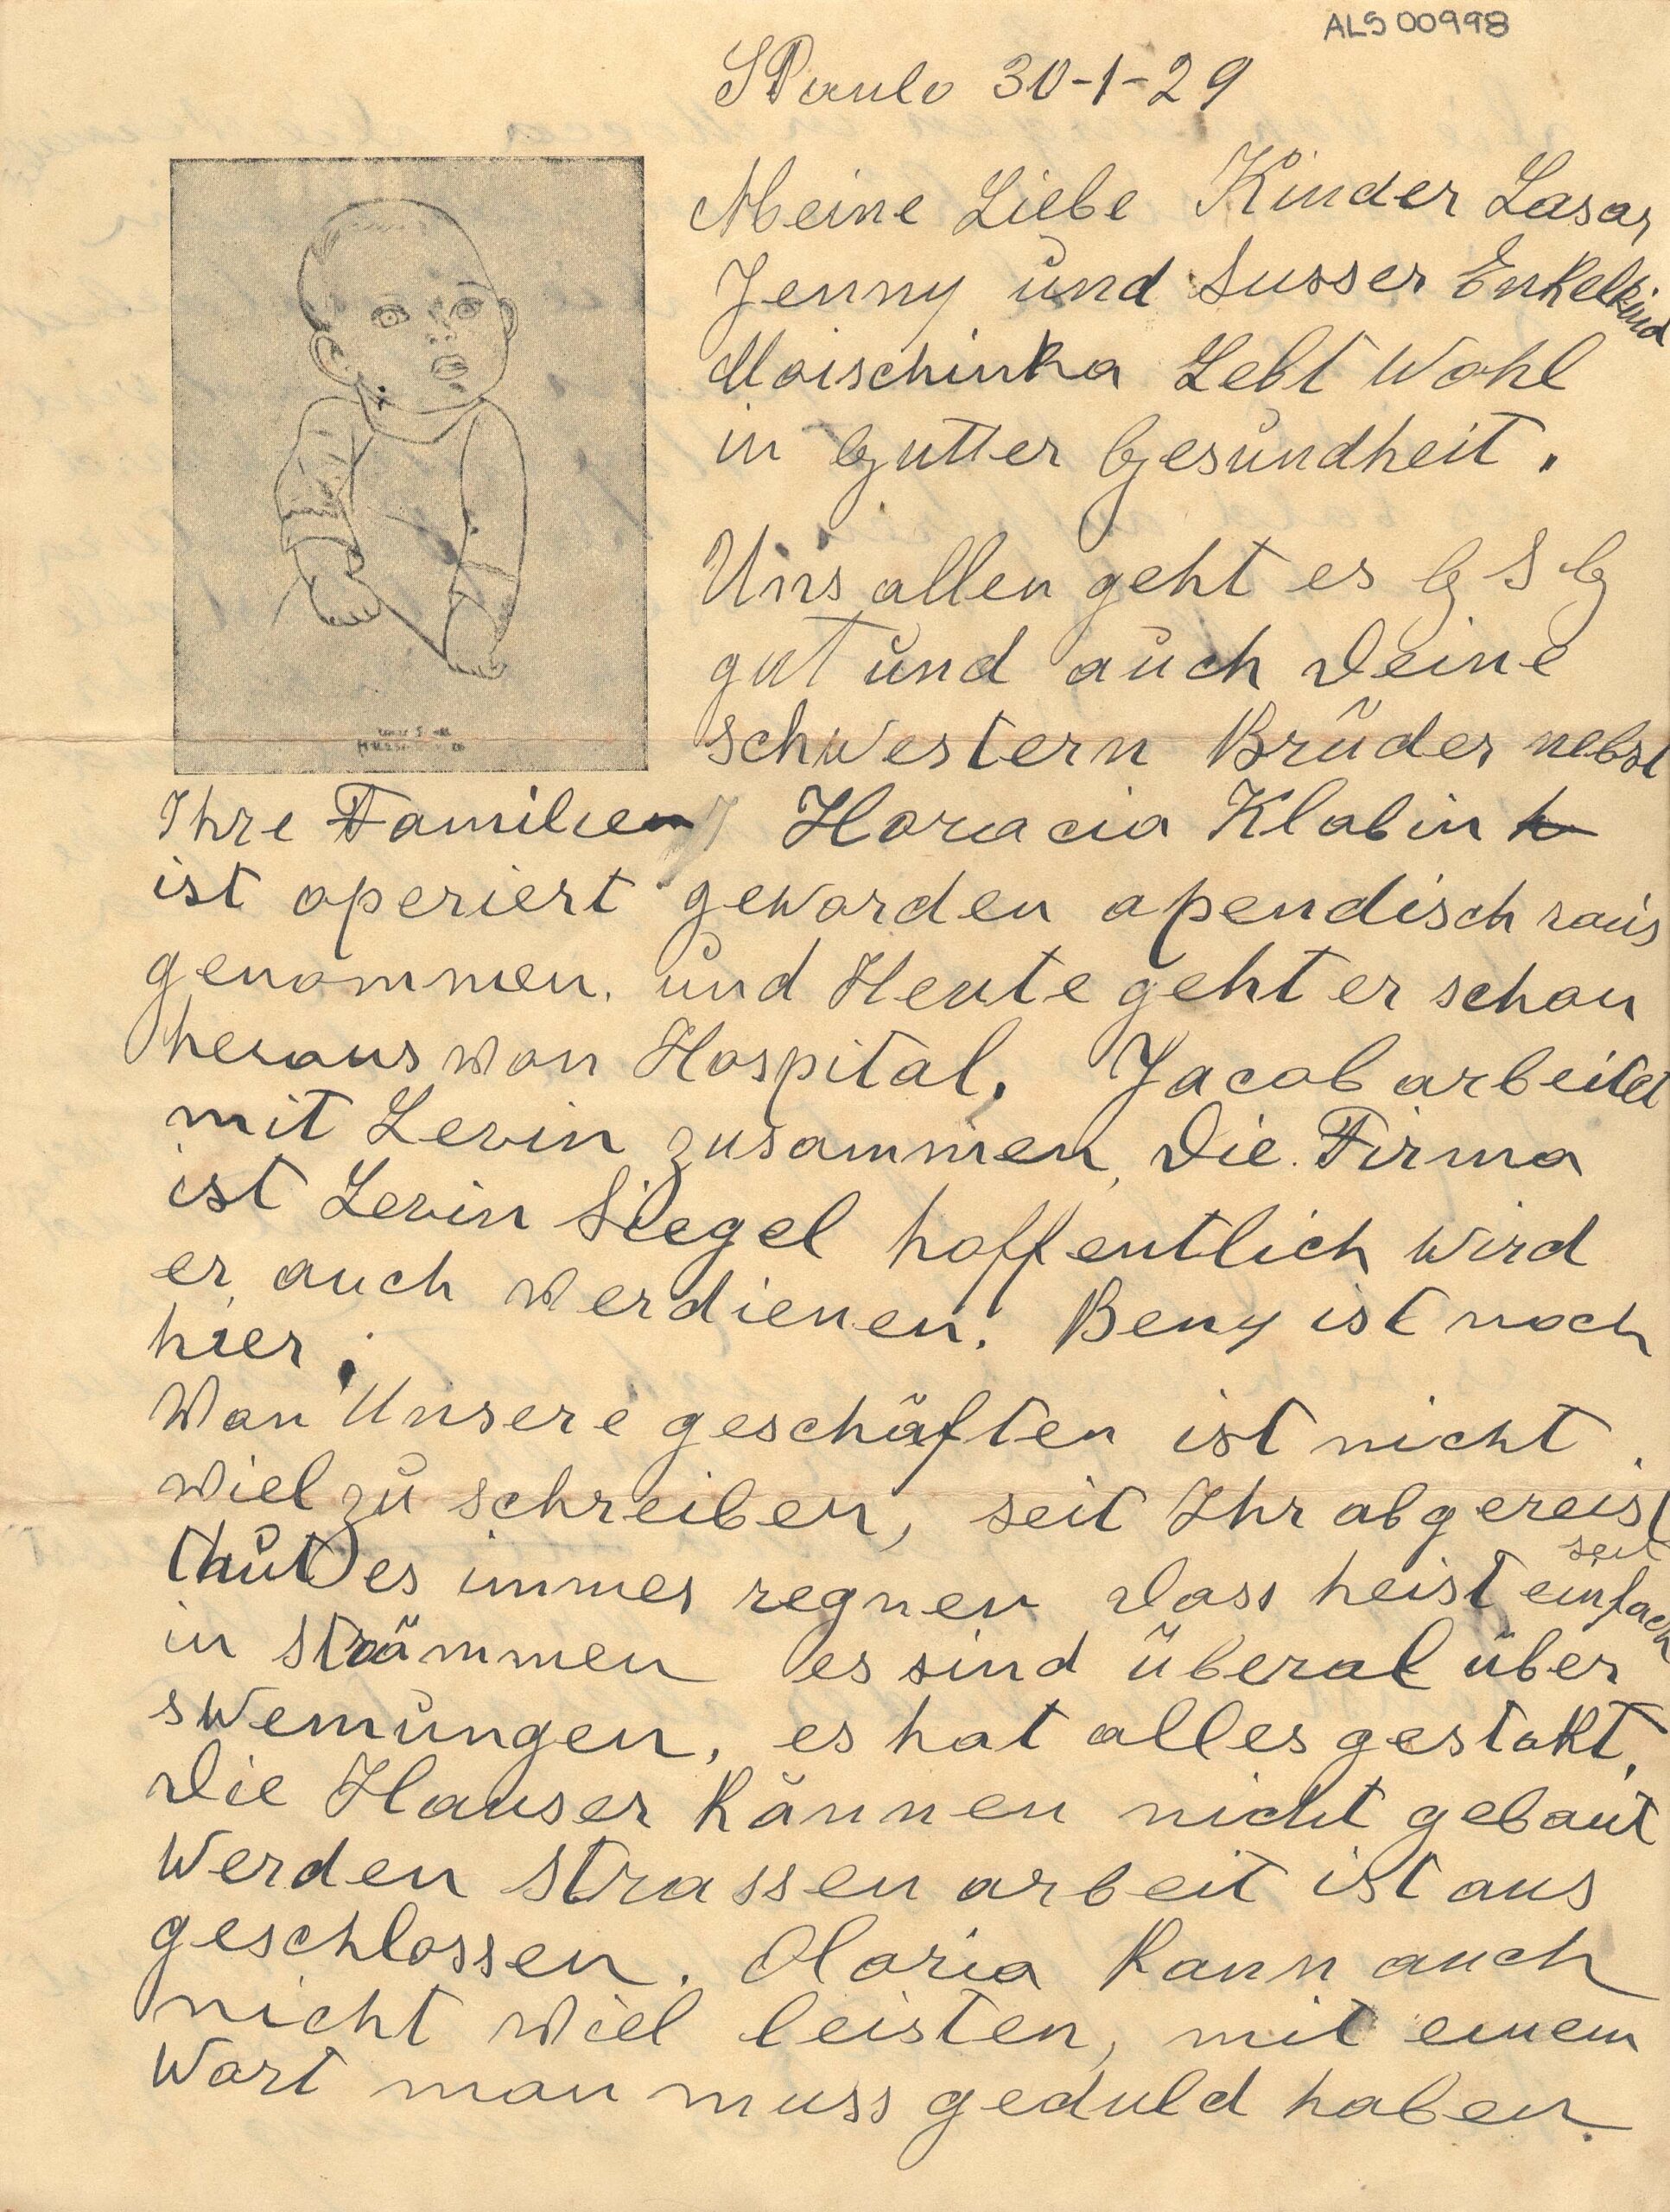 ALS 00998
SPaulo 30-1-29
Meine Liebe Kinder Lasar,
Jenny und Susser Enkelkind
Moischinka Lebt Wohl
in Gutter Gesundheit.
Uns allen geht es G S G
gut und auch Deine
schwestern Brüder nebst
Ihre Familien Horacia Klabin
ist operiert geworden apendisch raus
genommen. und Heute geht er schon
heraus won Hospital. Jacob arbeitet
mit Levin zusammen, Die Firma
ist Levin Siegel hoffentlich wird
er auch werdienen. Beny ist noch
hier.
Won Unsere geschäften ist nicht
wiel zu schreiben, seit Ihr abgereist
seit
thut es immer regnen dass heist einfach
in strömmen es sind überal über
swemungen, es hat alles gestokt,
Die Hauser Können nicht gebaut
werden strassen arbeit ist aus
geschlossen. Olaria Kann auch
nicht wiel leisten, mit einem
Wort man muss geduld haben.